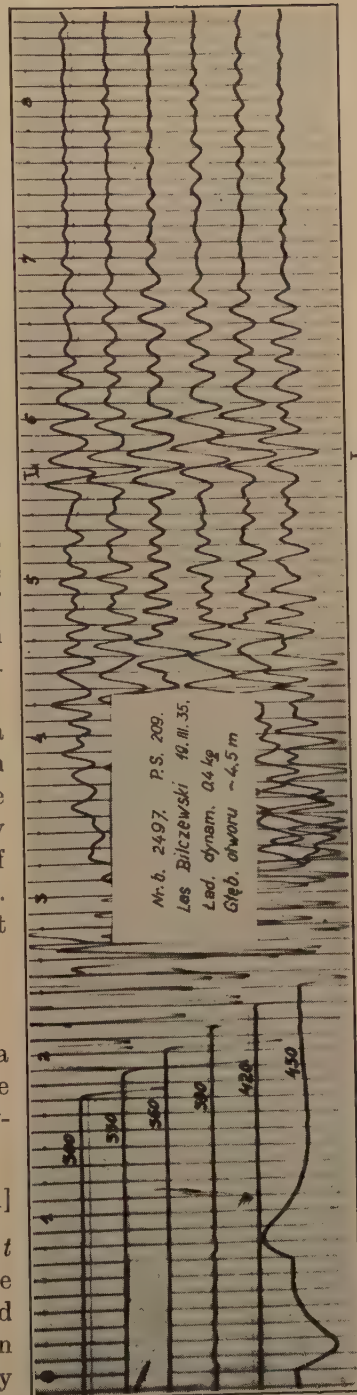 0 1 2 3 4 5 6 7 8
300
330
360
390
420
450
Nr.b. 2497. P.S. 209.
Las Bilczewski 19.III.35.
Ład. dynam. 0.4 kg
Głęb. otworu ~4,5 m